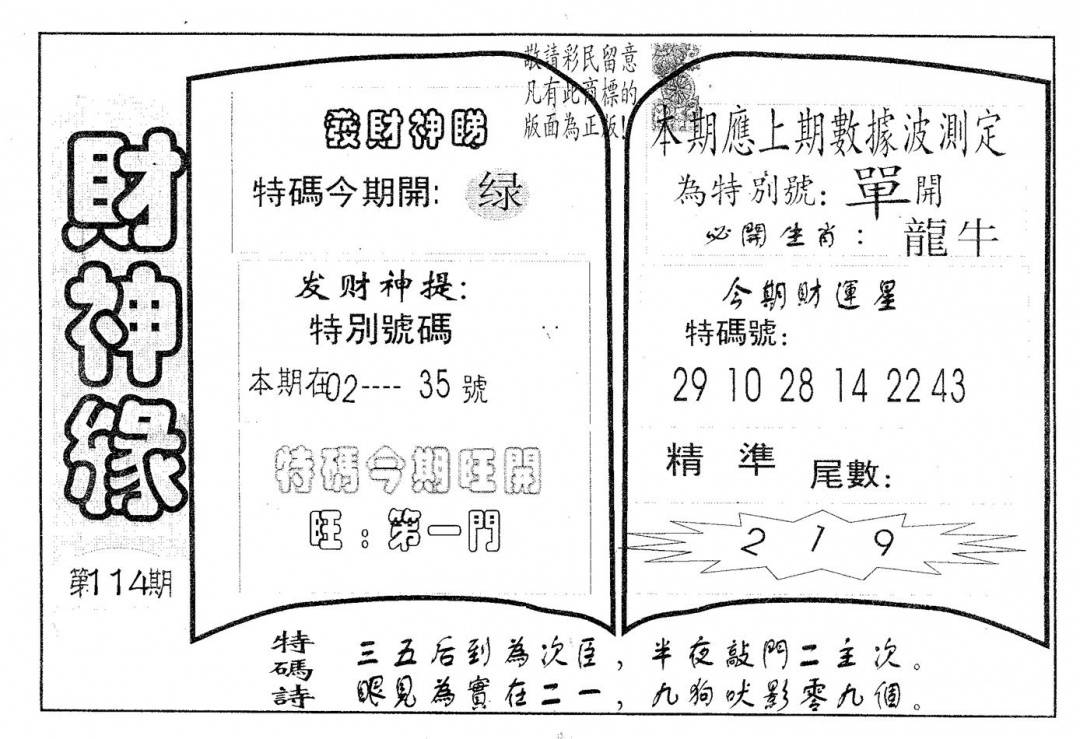 財神緣
第114期
敬請彩民留意
凡有此商標的
版面為正版!
發財神睇
特碼今期開: 绿
发财神提:
特別號碼
本期在02----35號
特碼今期旺開
旺:第一門
本期應上期數據波測定
為特別號:單開
必開生肖:龍牛
今期財運星
特碼號:
29 10 28 14 22 43
精準 尾數:
2 1 9
特碼詩
三五后到為次臣,半夜敲門二主次。
眼見為實在二一,九狗吠影零九個。